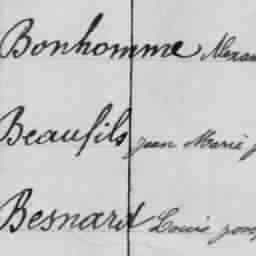 Bonhomme Alexan
Beaufils jean Marie j
Besnard Louis josep